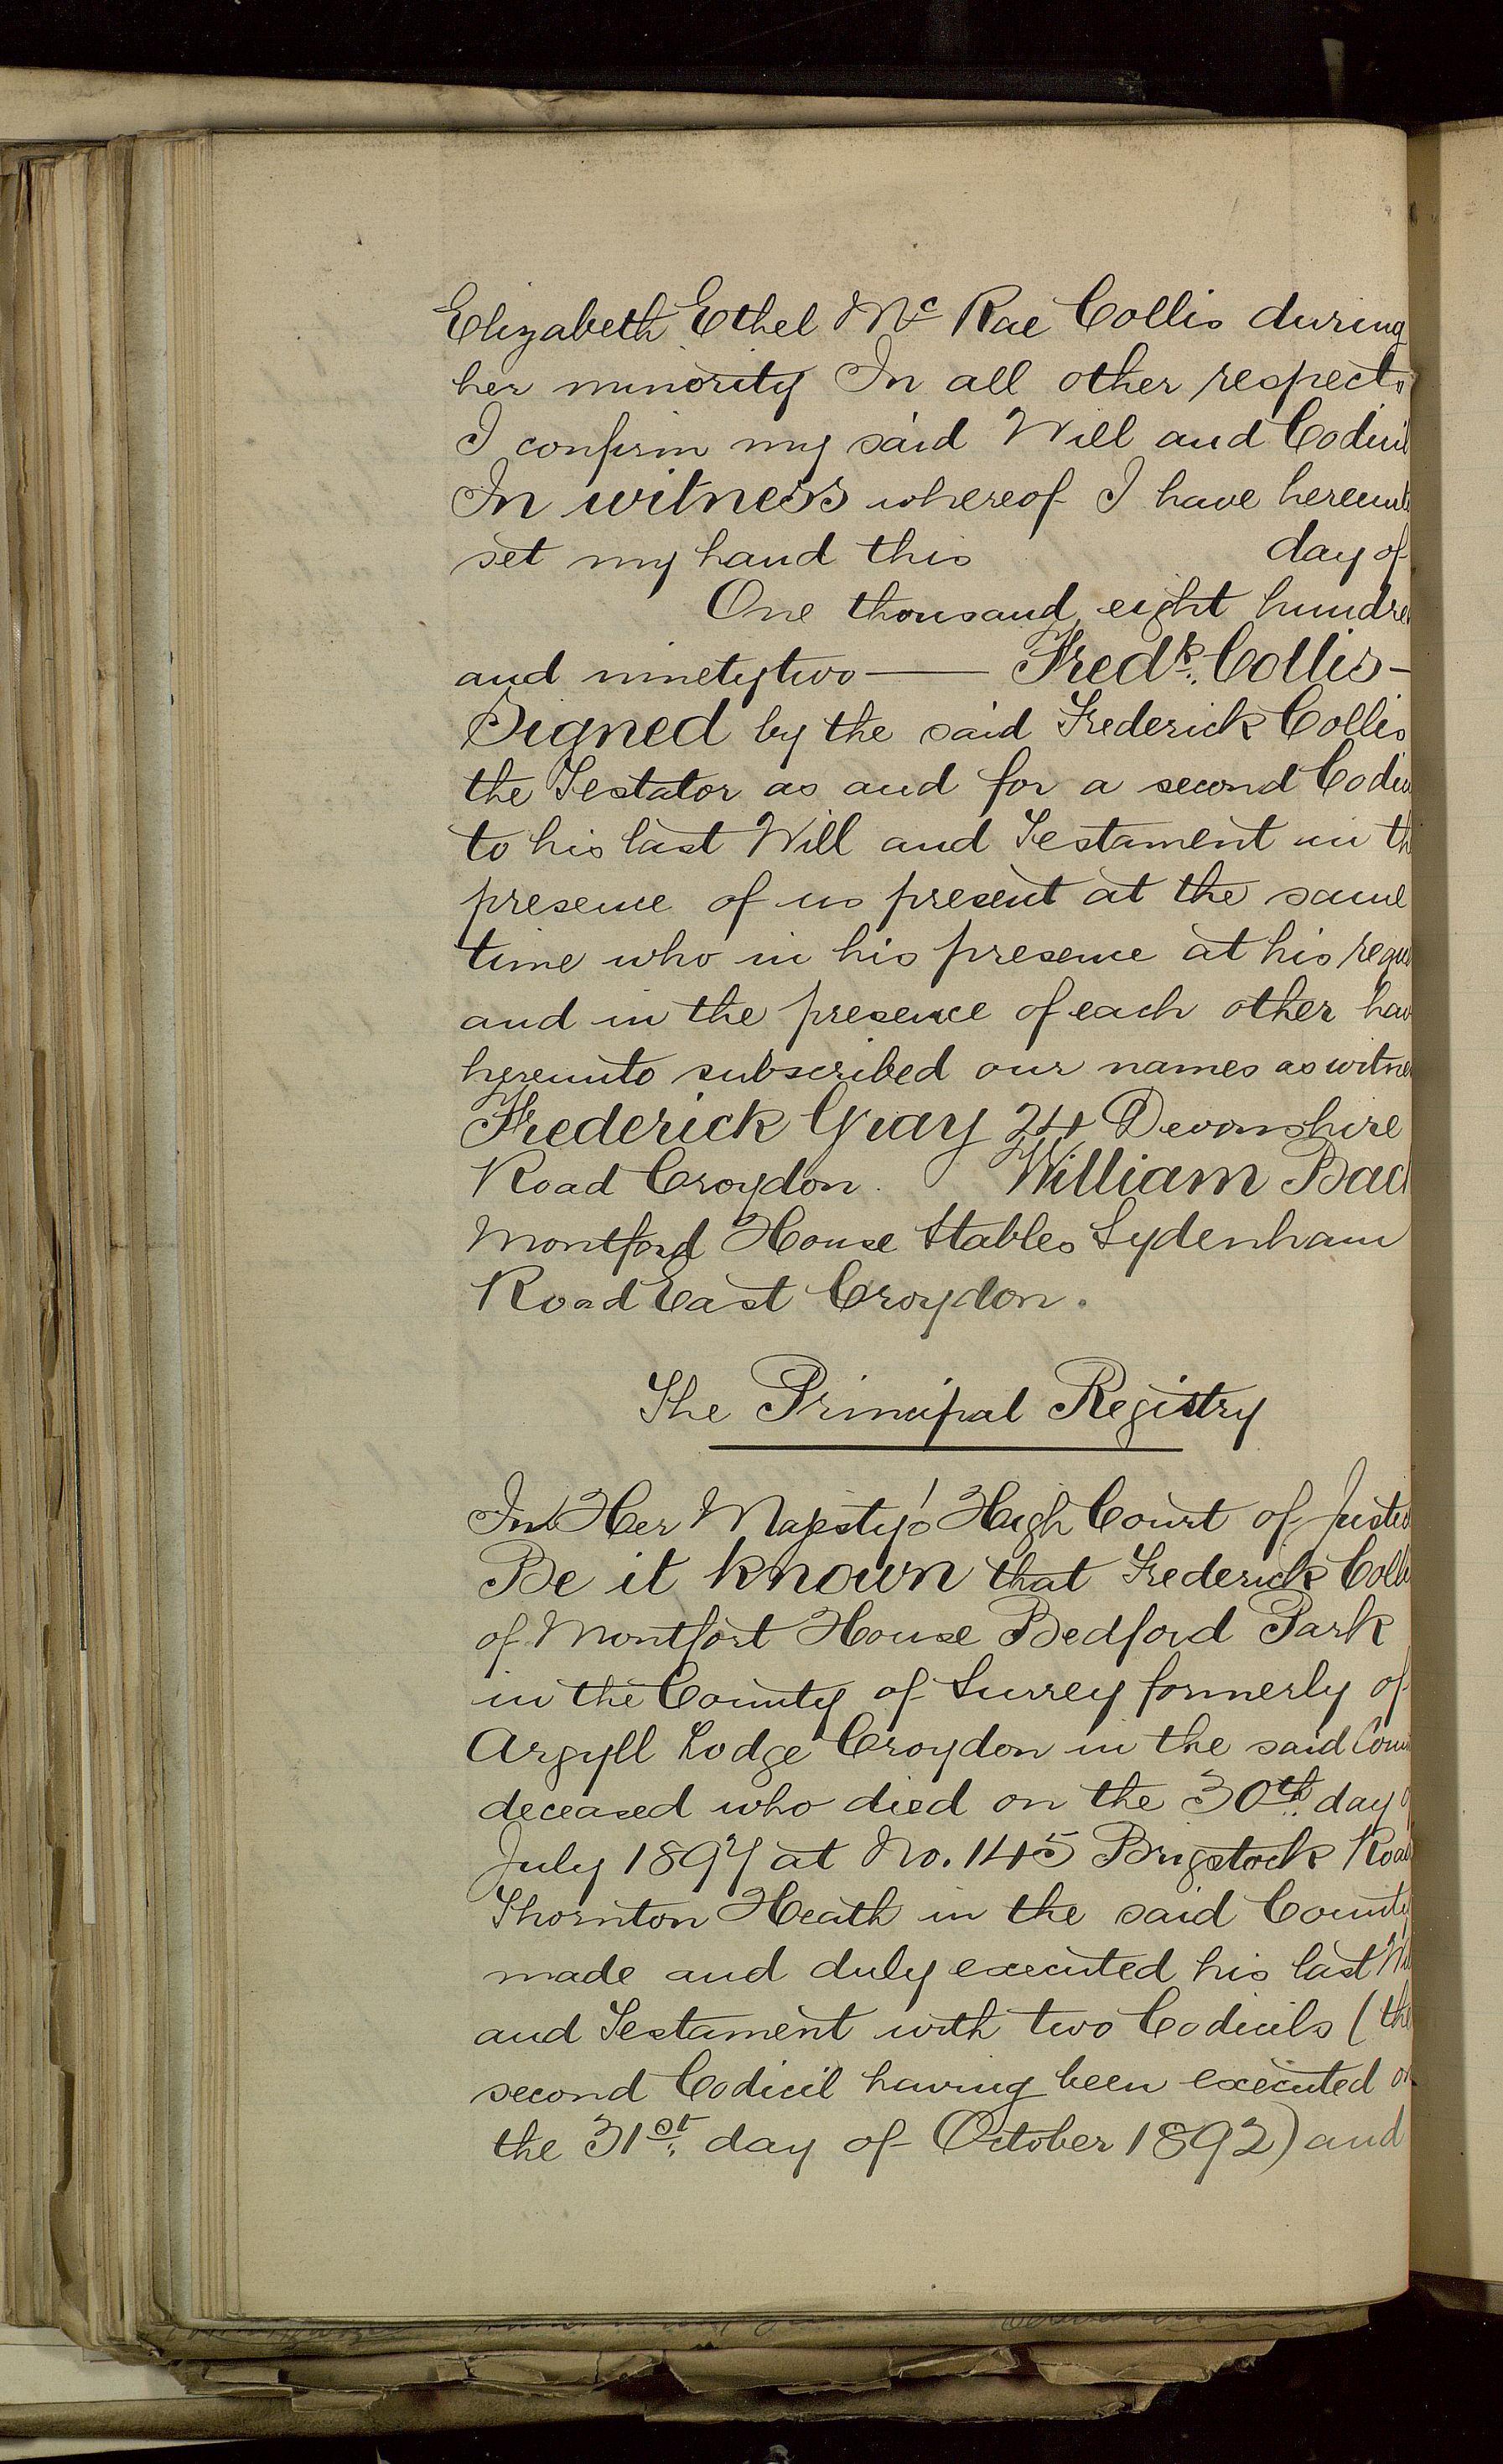 Elizabeth Ethel Mc Rae Collis during
her minority In all other respects
I confirm my said Will and Codicil
In witness whereof I have hereunto
set my hand this day of
One thousand eight hundred
and ninetytwo — Fredk. Collis —
Signed by the said Frederick Collis
the Testator as and for a second Codicil
to his last Will and Testament in the
presence of us present at the same
time who in his presence at his request
and in the presence of each other have
hereunto subscribed our names as witnesses
Frederick Gray 24 Devonshire
Road Croydon. William
Montford House Stables Sydenham
Road East Croydon.
The Principal Registry
In Her Majesty's High Court of Justice
Be it known that Frederick Collis
of Montfort House Bedford Park
in the County of Surrey formerly of
Argyll Lodge Croydon in the said County
deceased who died on the 30th. day of
July 1897 at No. 145 Brigstock Road
Thornton Heath in the said County
made and duly executed his last Will
and Testament with two Codicils (the
second Codicil having been executed on
the 31st. day of October 1892) and